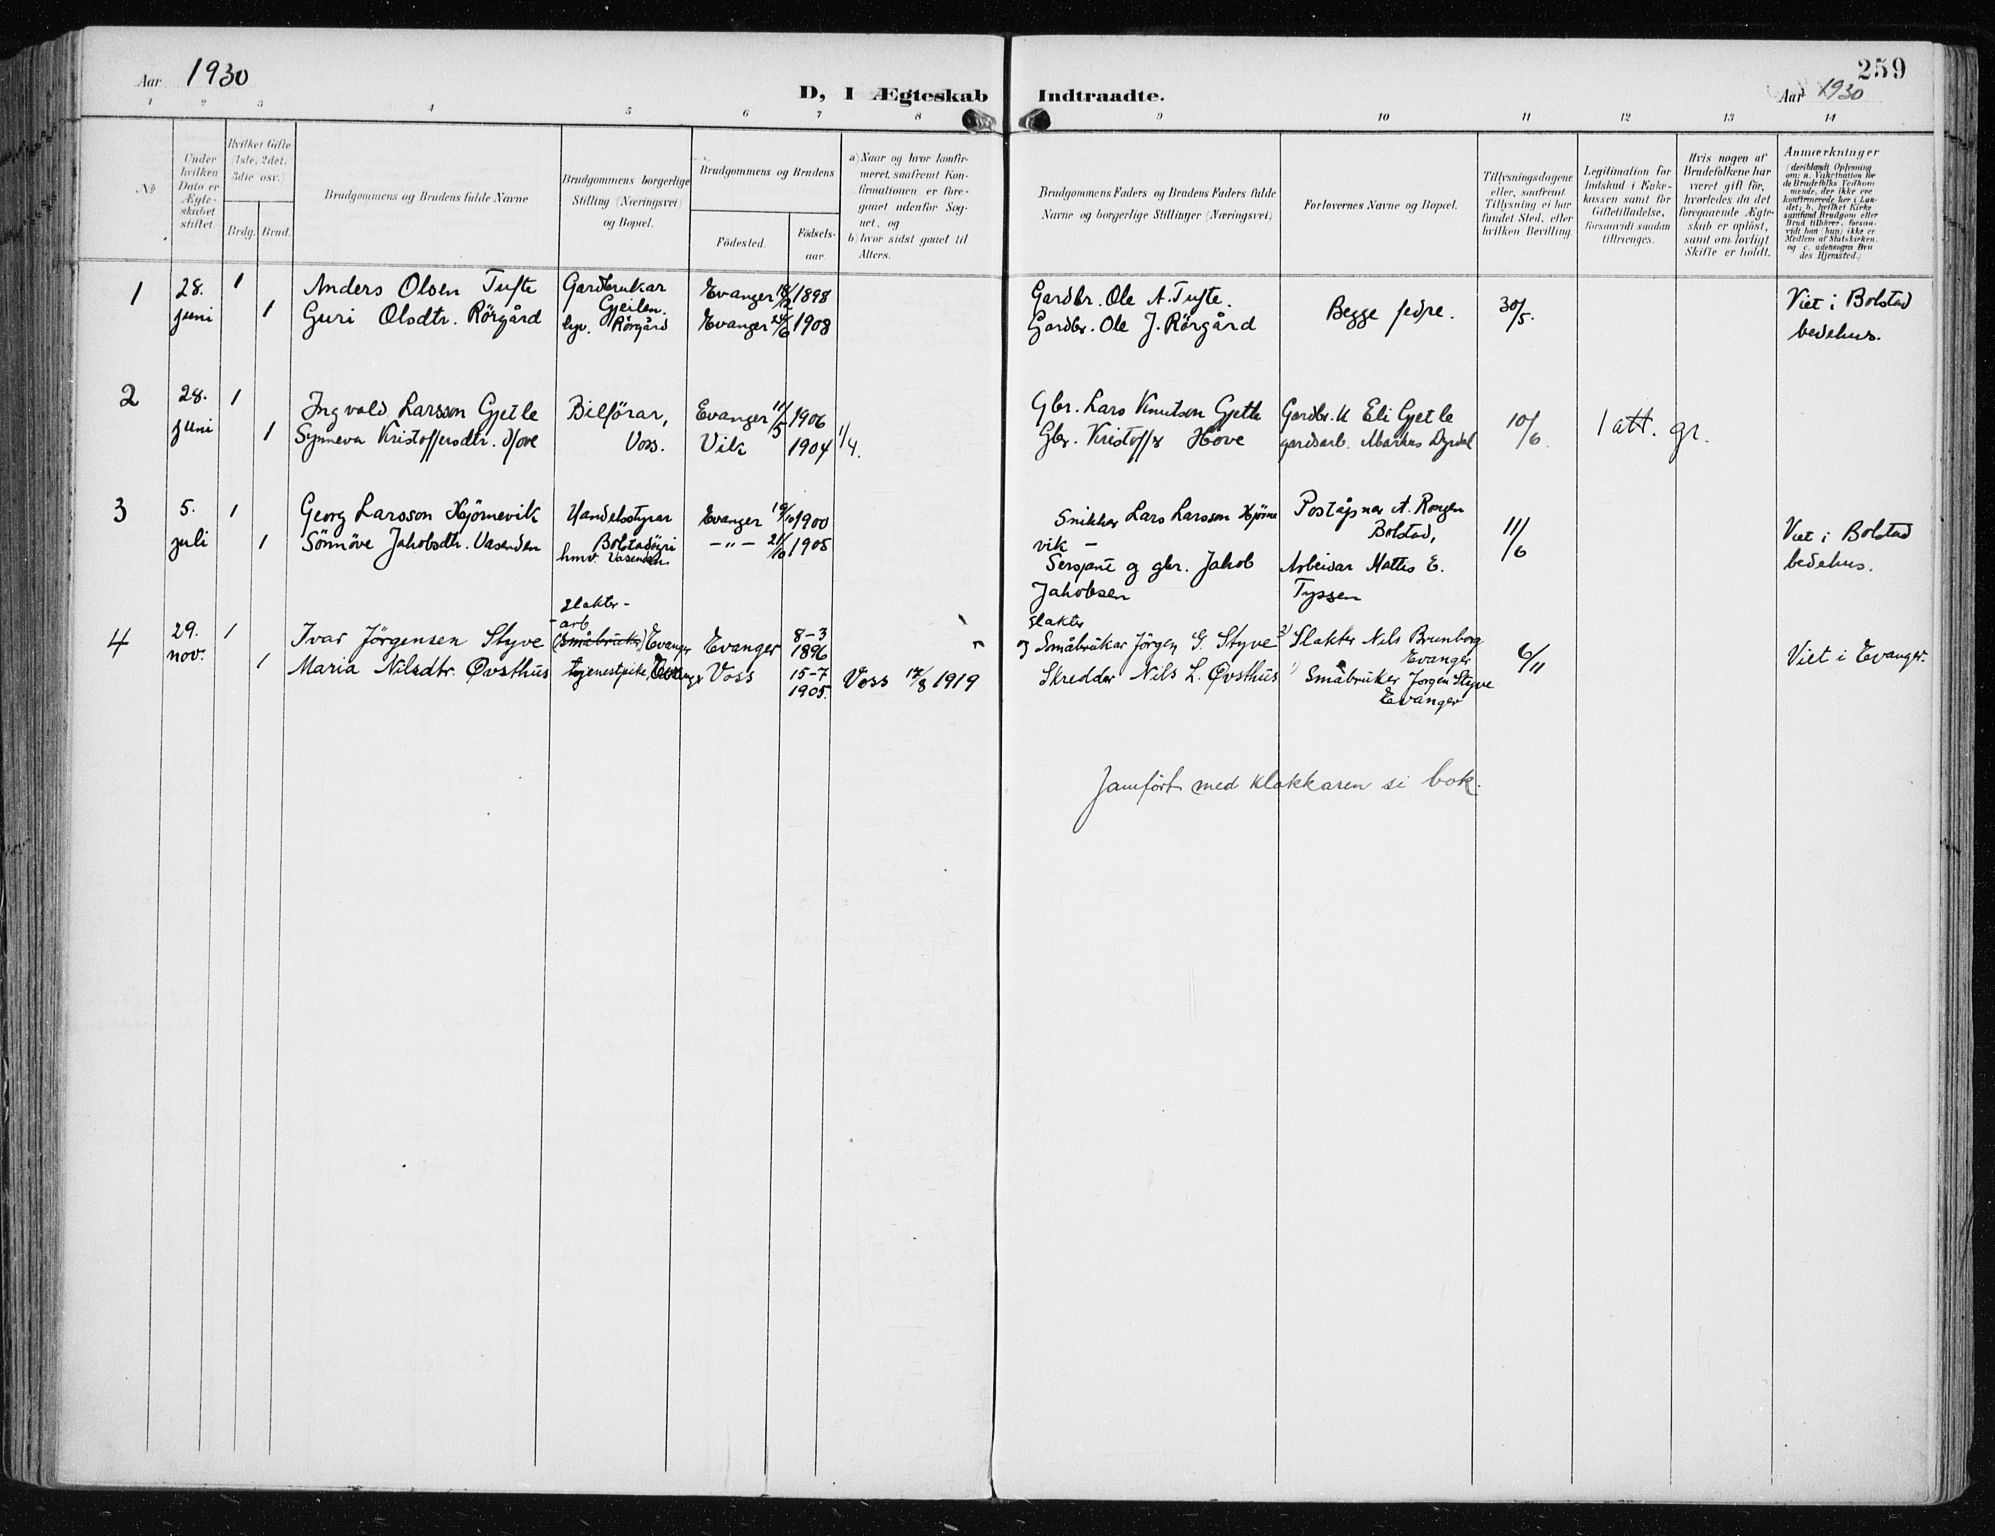 Aar 1930
D, I Ægteskab Indtraadte.
259
Aar 1930
1 2 3 4 5 6 7 8 9 10 11 12 13 14
No
Under hvilken Dato er Ægteskabet stiftet.
Hvilket Gifte (1ste, 2det, 3die osv.)
Brdg. Brud.
Brudgommens og Brudens fulde Navne
Brudgommens borgerlige Stilling (Næringsvei) og Bopæl.
Brudgommens og Brudens
Fødested.
Fødselsaar.
a) Naar og hvor konfirmeret, saafremt Konfirmationen er foregaaet udenfor Sognet, og
b) hvor sidst gaaet til Alters.
Brudgommens Faders og Brudens Faders fulde Navne og borgerlige Stillinger (Næringsvei)
Forlovernes Navne og Bopæl.
Tillysningsdagene eller, saafremt Tillysning ei har fundet Sted, efter hvilken Bevilling.
Legitimation for Indskud i Enkekassen samt for Giftetilladelse, forsaavidt saadan tiltrænges.
Hvis nogen af Brudefolkene har været gift før, hvorledes da det foregaaende Ægteskab er opløst, samt om lovligt Skifte er holdt.
Anmærkninger
(deriblandt Oplysning om: a. Vakcination for de Brudefolks Vedkommende, der ikke ere konfirmerede her i Landet; b. hvilket Kirkesamfund Brudgom eller Brud tilhører, forsaavidt han (hun) ikke er Medlem af Statskirken, og c. udensogns Brudes Hjemsted.)
1 28. 1 Anders Olsen Tufte Gardbrukar Evanger 18/12 1898 Gardbr. Ole A. Tufte. Begge fedre. 30/5. Viet i Bolstad
juni 1 Guri Olsdtr. Rörgård Rörgård Evanger 24/6 1908 Gardbr. Ole J. Rörgård bedehus.
2 28. 1 Ingvald Larsson Gjetle Bilförar, Evanger 11/5 1906 Gbr. Lars Knutson Gjetle Gardbr. Eli Gjetle 10/6. 1 att. gr.
juni 1 Synneva Kristoffersdtr. Hove Voss. Vik 1904 1/4. Gbr. Kristoffer Hove gardarb. Markus Dyrdal
3 5. 1 Georg Larsson Hjörnevik Handelsstyrar Evanger 19/10 1900 Snikkar Lars Larsson Hjörnevik — Poståpnar A. Rongen Bolstad, 11/6 Viet i Bolstad
juli 1 Sönnöve Jakobsdtr. Vasenden Bolstadöyri hmv. Vasenden — " — 21/10 1905 Sersjant og gbr. Jakob Jakobsen Arbeidar Mattis E. Tyssen bedehus.
4 29. 1 Ivar Jörgensen Styve Slakter- arb (Småbruk), Evanger Evanger 8-3 1896 slakter og Småbrukar Jörgen G. Styve 2) Slakter Nils Brunborg Evanger 6/11 Viet i Evanger.
nov. 1 Maria Nilsdtr. Øvsthus tjenestpike, Evanger Voss 15-7 1905. Voss 17/8 1919 Skredder Nils L. Øvsthus 1) Småbruker Jörgen Styve Evanger
Jamfört med klokkaren si bok.